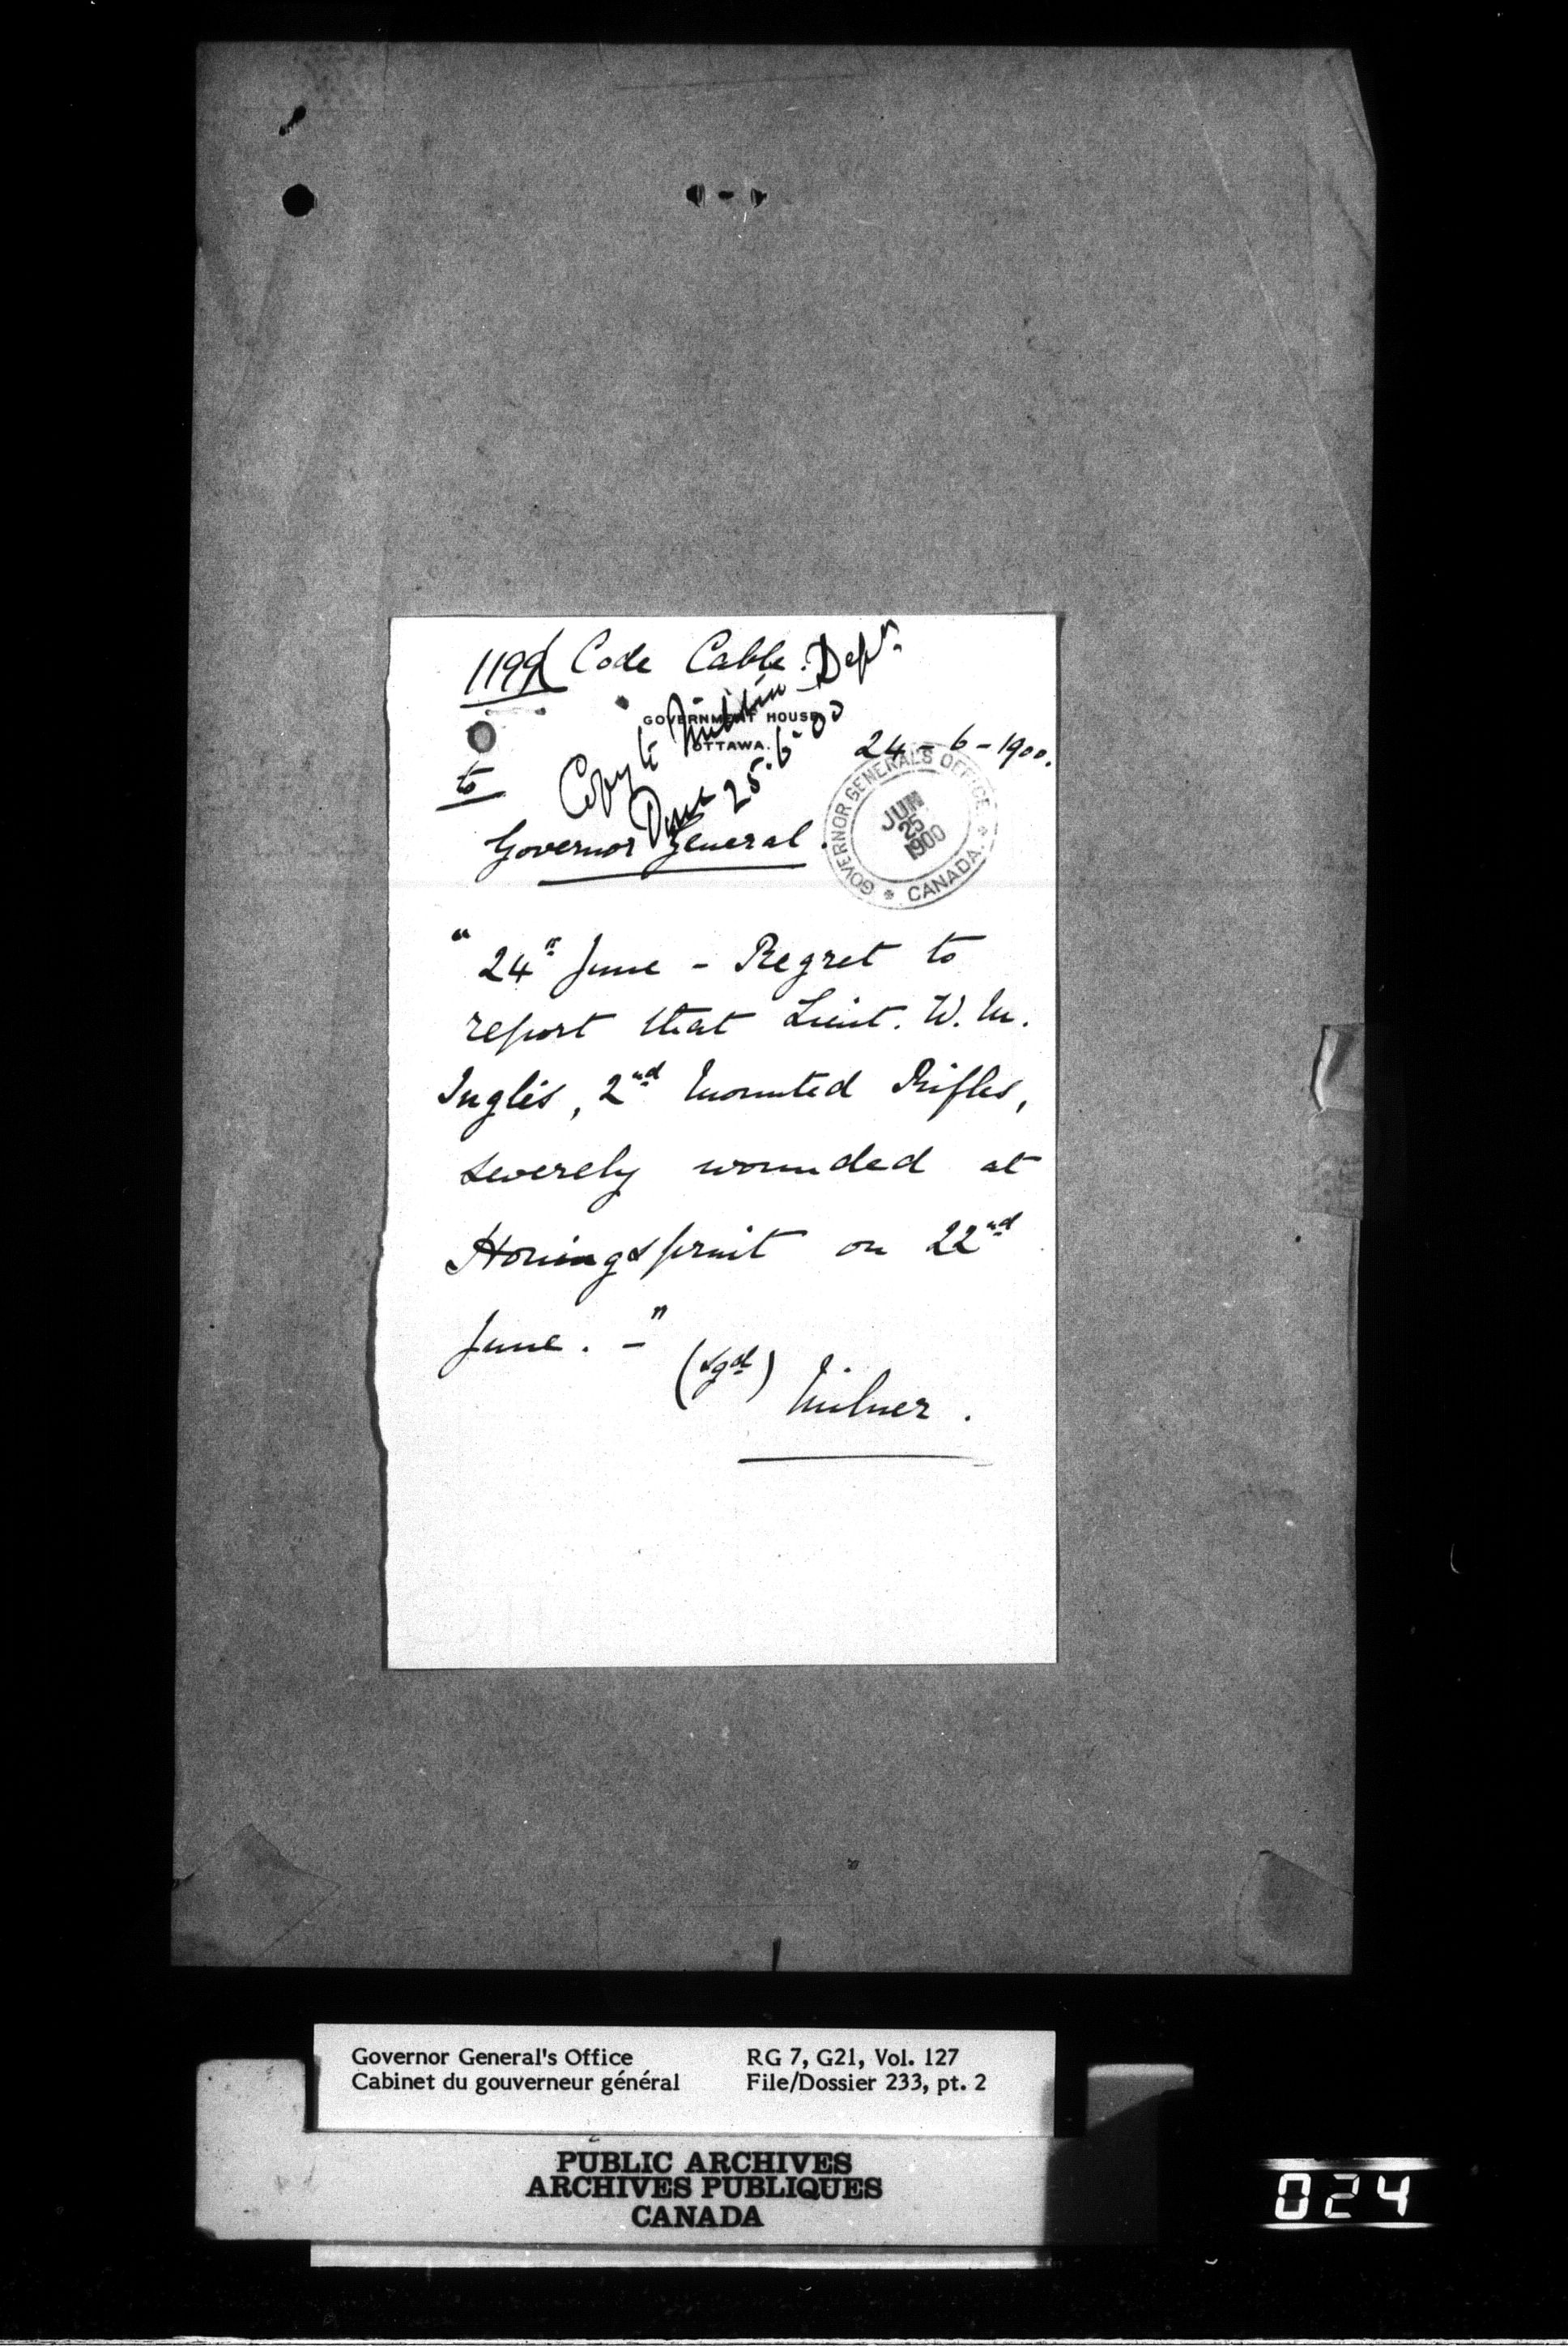 1199 Code Cable.
Copy to Militia Dept.
Done 25.6.00
GOVERNMENT HOUSE
OTTAWA.
24-6-1900.
to
Governor General.
GOVERNOR GENERAL'S OFFICE
CANADA.
JUN
25
1900
"24th June - Regret to
report that Lieut. W. M.
Inglis, 2nd Mounted Rifles,
severely wounded at
Honingspruit on 22nd
June. -"
(sgd) Milner.
Governor General's Office
Cabinet du gouverneur général
RG 7, G21, Vol. 127
File/Dossier 233, pt. 2
PUBLIC ARCHIVES
ARCHIVES PUBLIQUES
CANADA
024